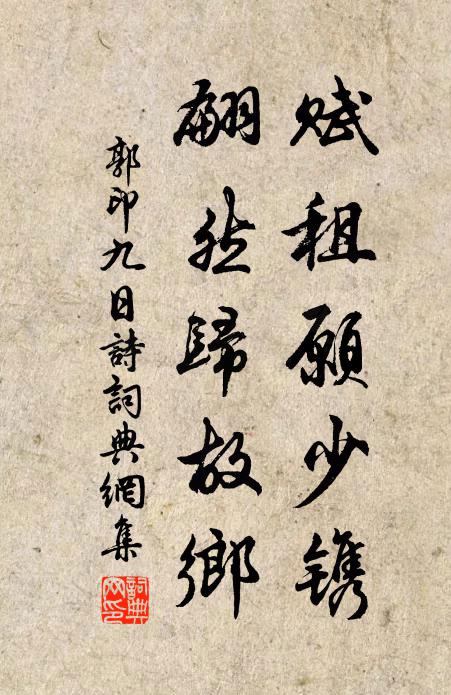 赋租願少鐫
翩然歸故鄉
郭印九日詩詞典網集
詞典網印